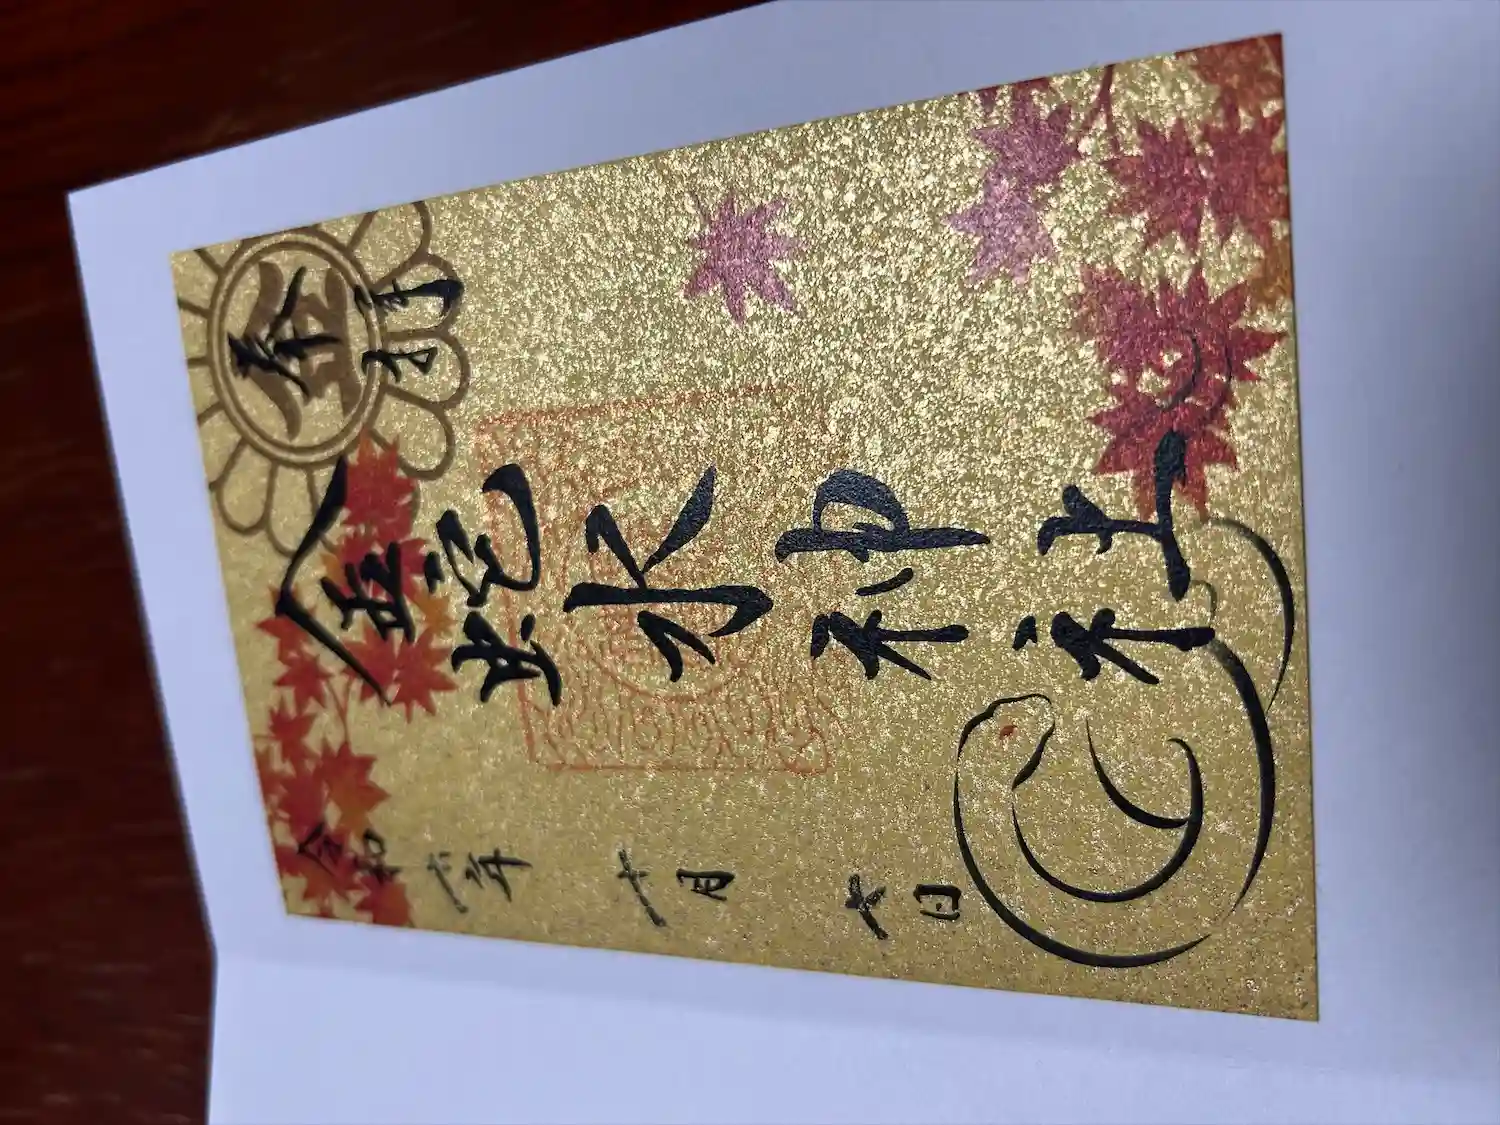 奉拝
金
金蛇水神社
令和六年十月 日